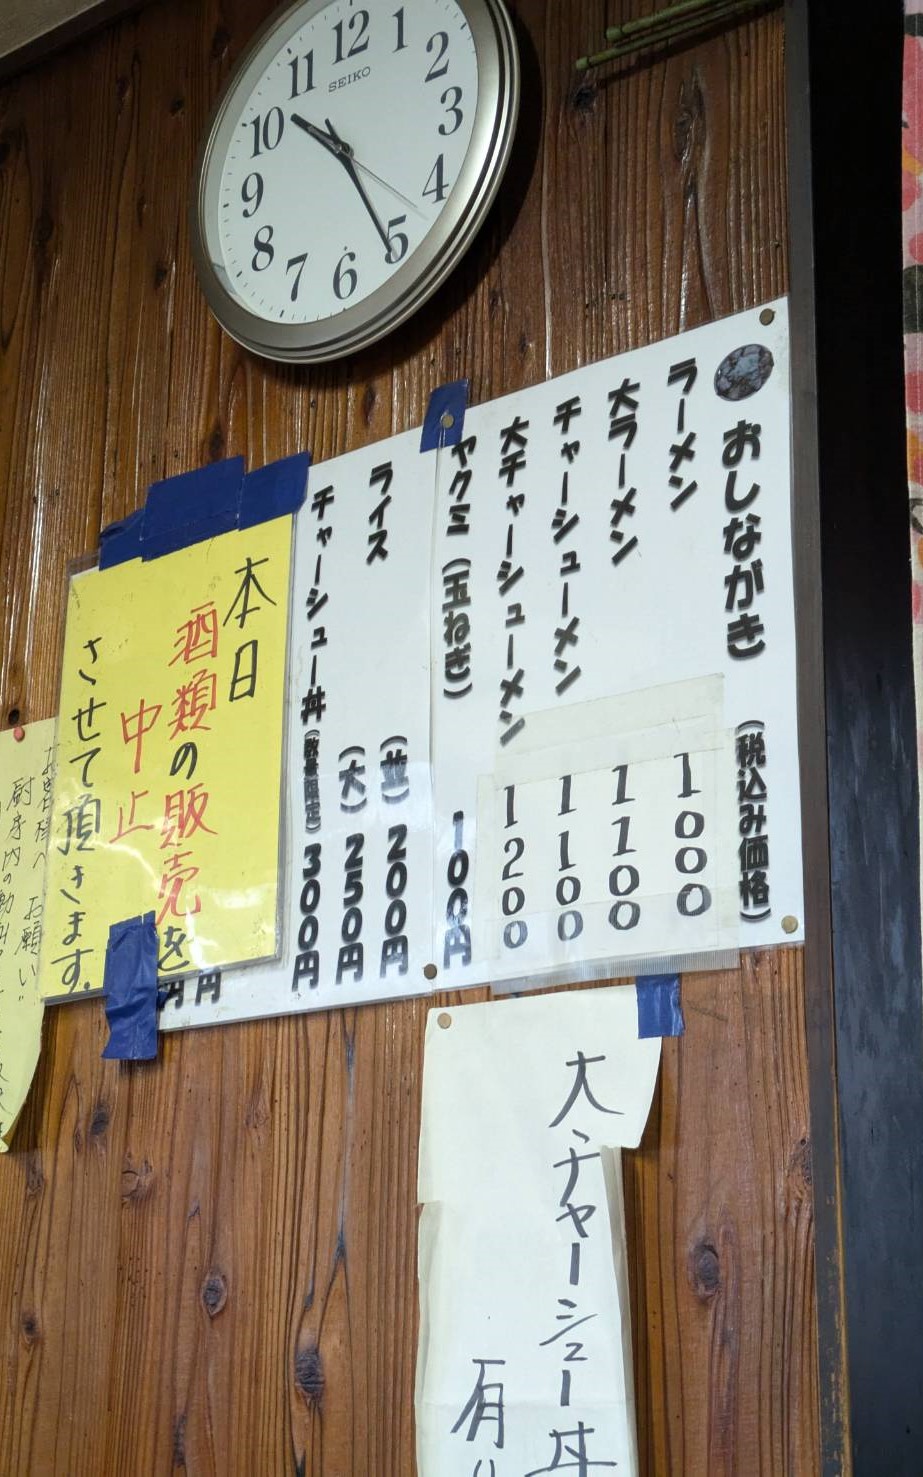 12
1
2
3
4
5
6
7
8
9
10
11
SEIKO
おしながき (税込み価格)
ラーメン 1000
大ラーメン 1100
チャーシューメン 1100
大チャーシューメン 1200
ヤクミ(玉ねぎ) 100円
ライス (並) 200円
(大) 250円
チャーシュー丼(数量限定) 300円
円
円
本日
酒類の販売を
中止
させて頂きます.
お客様へ お願い"
厨房内の動画
大チャーシュー丼
有り